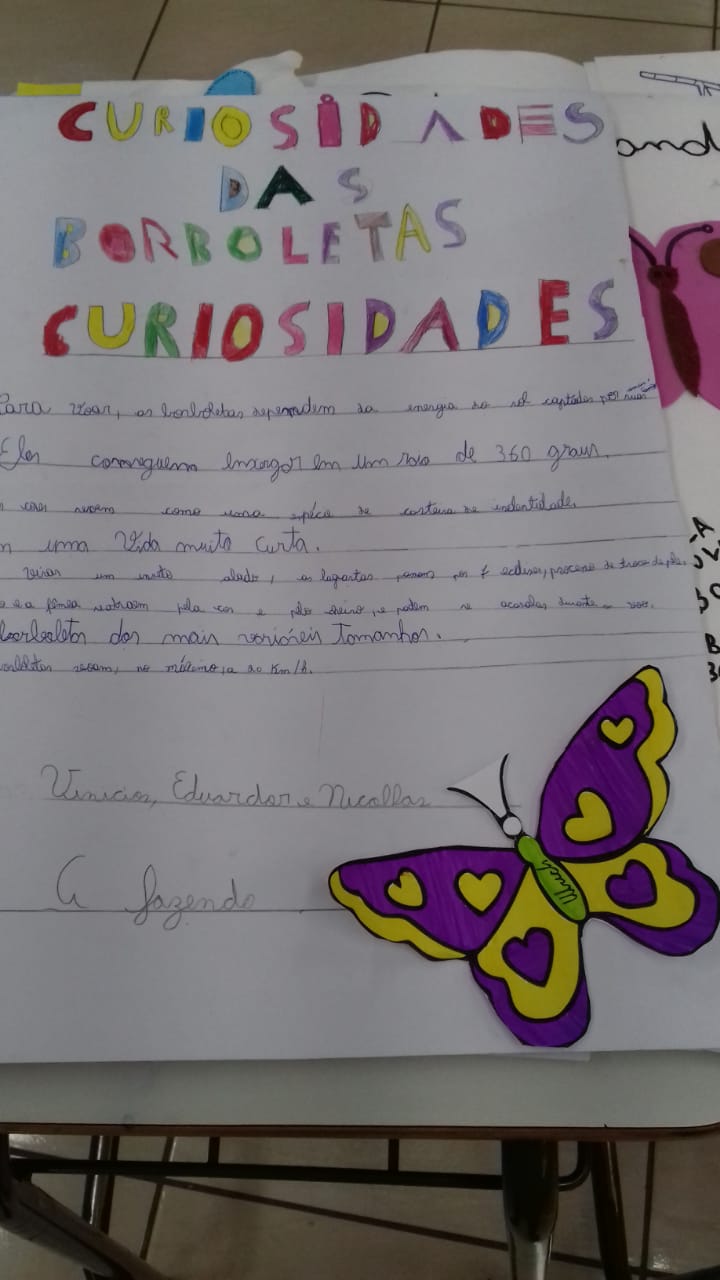 CURIOSIDADES
DAS
BORBOLETAS
CURIOSIDADES
Para voar, as borboletas dependem da energia do sol captadas por
Elas conseguem enxergar em um raio de 360 graus.
cores servem como uma espécie de carteira de indentidade.
uma vida muito curta.
virar um inseto alado, as lagartas passam por 7 ecdises, processo de troca de pele.
e a fêmea se atraem pela cor e pelo cheiro, e podem se acasalar durante o voo.
borboletas dos mais variáveis tamanhos.
voam, no máximo, a 20 Km/h.
Vinicios, Eduardor e Nicollas
A fazendo
and